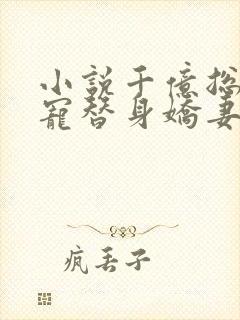 小說千億總
寵替身嬌妻
疯丢子